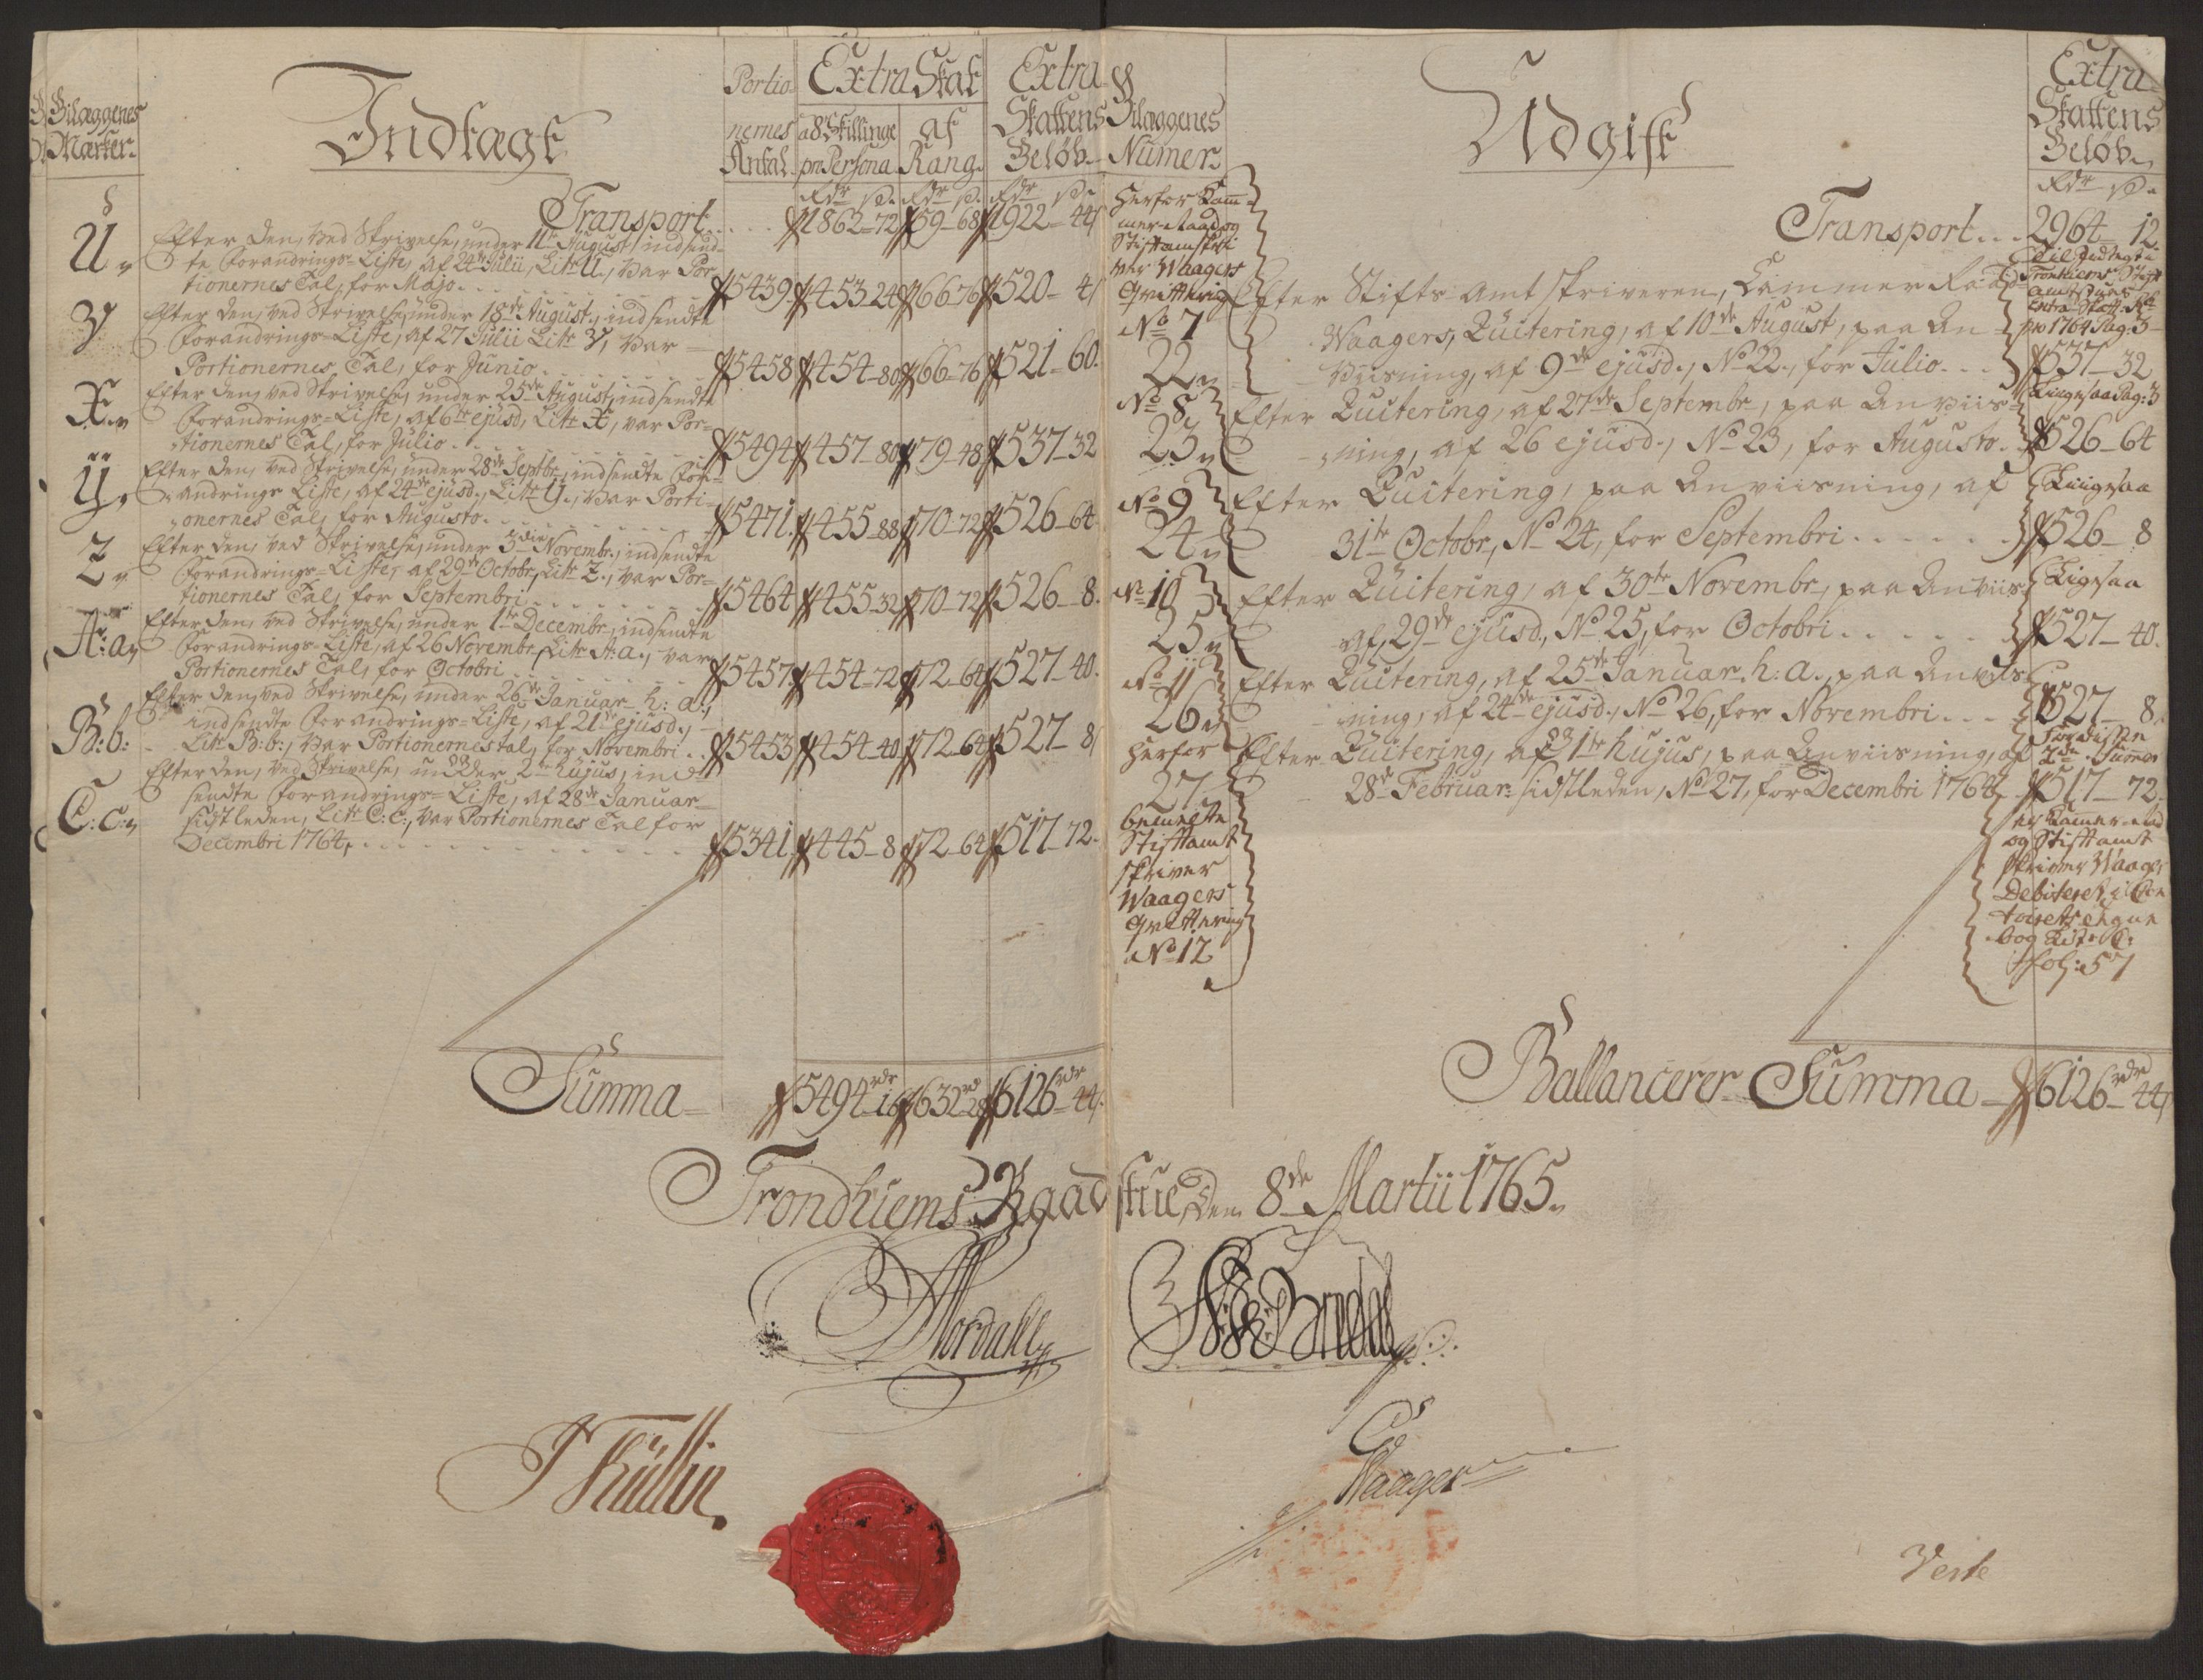 Bilaggenes
Marker.
Indtægt
Portio-
nernes
Antal.
Extra Skat
a 8te Skillinge
pr Persona
af
Rang.
Extra
Skattens
Beløb.
Rdr ß. Rdr ß. Rdr ß.
Transport . . . . 1862-72 59-68 1922-44
U.
Efter den, ved Skrivelse, under 11te August indsend-
te Forandrings-Liste, af 24de Julii, Litr U., var Por-
tionernes Tal, for Majo . . . 5439. 453-24 66-76 520-4
V
Efter den, ved Skrivelse, under 18de August, indsendte
Forandrings-Liste, af 27 Julii Litr V, var
Portionernes Tal, for Junio . . . 5458 454-80 66-76 521-60.
X.
Efter den, ved Skrivelse, under 25de August, indsendte
Forandrings-Liste, af 6te ejusd, Litr X, var Por-
tionernes Tal, for Julio . . . 5494 457-80 79-48 537-32
Ÿ.
Efter den, ved Skrivelse, under 28de Septbr, indsendte For-
andrings Liste, af 24de ejusd., Litr Y., var Porti-
onernes Tal, for Augusto. . . . 5471. 455-88 70-72 526-64
Z.
Efter den, ved Skrivelse, under 3die Novembr., indsendte
Forandrings-Liste, af 29de Octobr, Litr Z., var Por-
tionernes Tal, for Septembri . . . 5464 455-32 70-72 526-8.
A:a.
Efter den, ved Skrivelse, under 1te Decembr., indsendte
Forandrings-Liste, af 26 Novembr, Litr A:a., var
Portionernes Tal, for Octobri . . . 5457 454-72 72-64 527-40.
B:b:
Efter den, ved Skrivelse, under 26de Januar h: a:,
indsendte Forandrings-Liste, af 21de ejusd.,
Litr B:b:, var Portionernes tal, for Novembri . . 5453 454-40 72-64 527-8
C:c:
Efter den, ved Skrivelse, under 2den hujus, ind-
sendte Forandrings-Liste, af 28de Januar
sidstleden, Litr C:c:, var Portionernes Tal for
Decembri 1764, . . . 5341 445-8 72-64 517-72.
Summa 5494rdr-16 632rd28 6126rdr-44
Bilaggenes
Numer.
Udgift
Extra
Skattens
Beløb.
Rdr ß.
Herfor Kam-
mer-Raad og
Stiftamtskri-
ver Waagers
Qvittering
No 7
22.
No 8
23.
No 9
24.
No 10
25.
No 11
26.
Herfor
27
bemelte
Stiftamt
skriver
Waagers
Qvittering
No 12
Transport . . . 2964-12.
Til Indtægt i
Tronhiems Stift
amtstues
Extra-Skatt. R
pro 1764 Pag: 3
Efter Stifts-Amtskriveren, Cammer Raad
Waagers, Quitering, af 10de August, paa An-
viisning, af 9de ejusd., No 22., for Julio . . . 537-32
Liigesaa Pag: 3
Efter Quitering, af 27de Septembr, paa Anviis-
ning, af 26 ejusd., No 23, for Augusto . . 526-64
Liigesaa
Efter Quitering, paa Anviisning, af
31te Octobr, No 24, for Septembri . . . . . 526-8
Ligesaa
Efter Quitering, af 30te Novembr, paa Anviis
af, 29de ejusd., No 25, for Octobri . . . . . 527-40.
Efter Quitering, af 25de Januar h: a., paa Anviis-
ning, af 24de ejusd., No 26, for Novembri . . . 527-8.
Efter Quitering, af 1te hujus, paa Anviisning, af
28de Februar: sidstleden, No 27, for Decembri 1764 517-72.
Summa
er Kammer-raad
og Stiftamt
skriver Waager
Debiteret i Con
toirets egne
bog
fol: 57
Ballancerer Summa 6126rdr-44
Trondhiems Raadstue, den 8de Martii 1765.
Nordahl
Bredal
J Küllin.
Waager
Verte